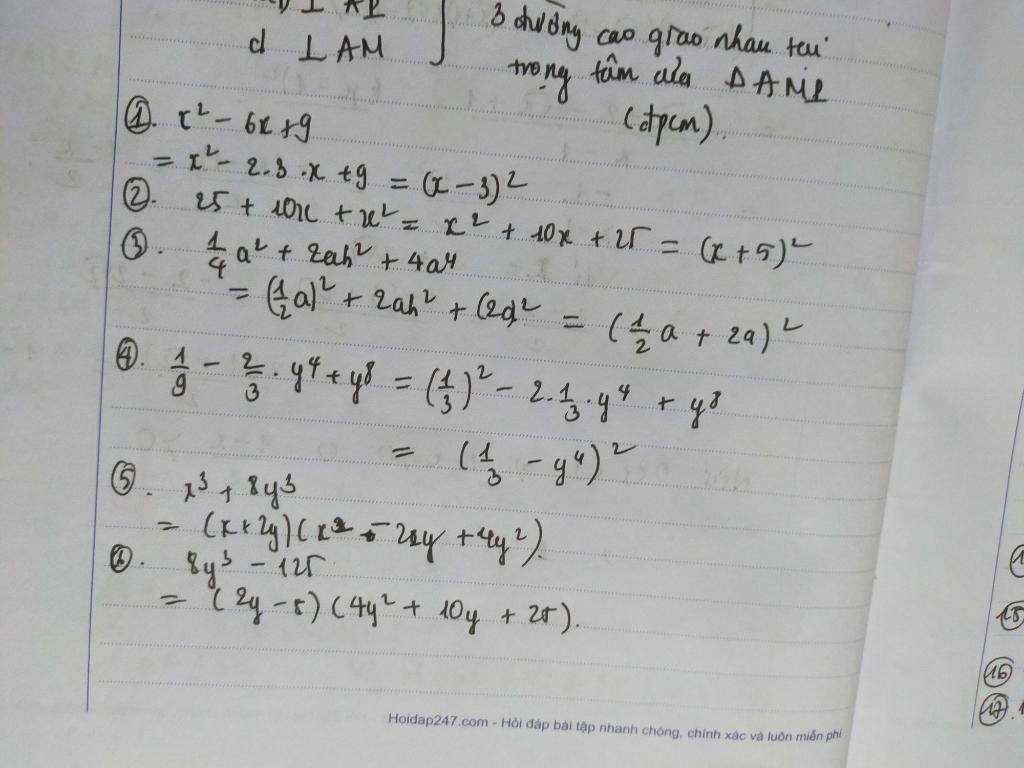 ⊥ AP
d ⊥ AM
3 đường cao giao nhau tại
trọng tâm của ΔAMP
(đpcm).
①. x² - 6x + 9
= x² - 2.3.x + 9 = (x - 3)²
②. 25 + 10x + x² = x² + 10x + 25 = (x + 5)²
③. 1/4 a² + 2ab² + 4a⁴
= (1/2 a)² + 2ab² + (2a)² = (1/2 a + 2a)²
④. 1/9 - 2/3 . y⁴ + y⁸ = (1/3)² - 2.1/3.y⁴ + y⁸
= (1/3 - y⁴)²
⑤. x³ + 8y³
= (x + 2y)(x² - 2xy + 4y²).
⑥. 8y³ - 125
= (2y - 5)(4y² + 10y + 25).
⑮
⑯
⑰.
Hoidap247.com - Hỏi đáp bài tập nhanh chóng, chính xác và luôn miễn phí